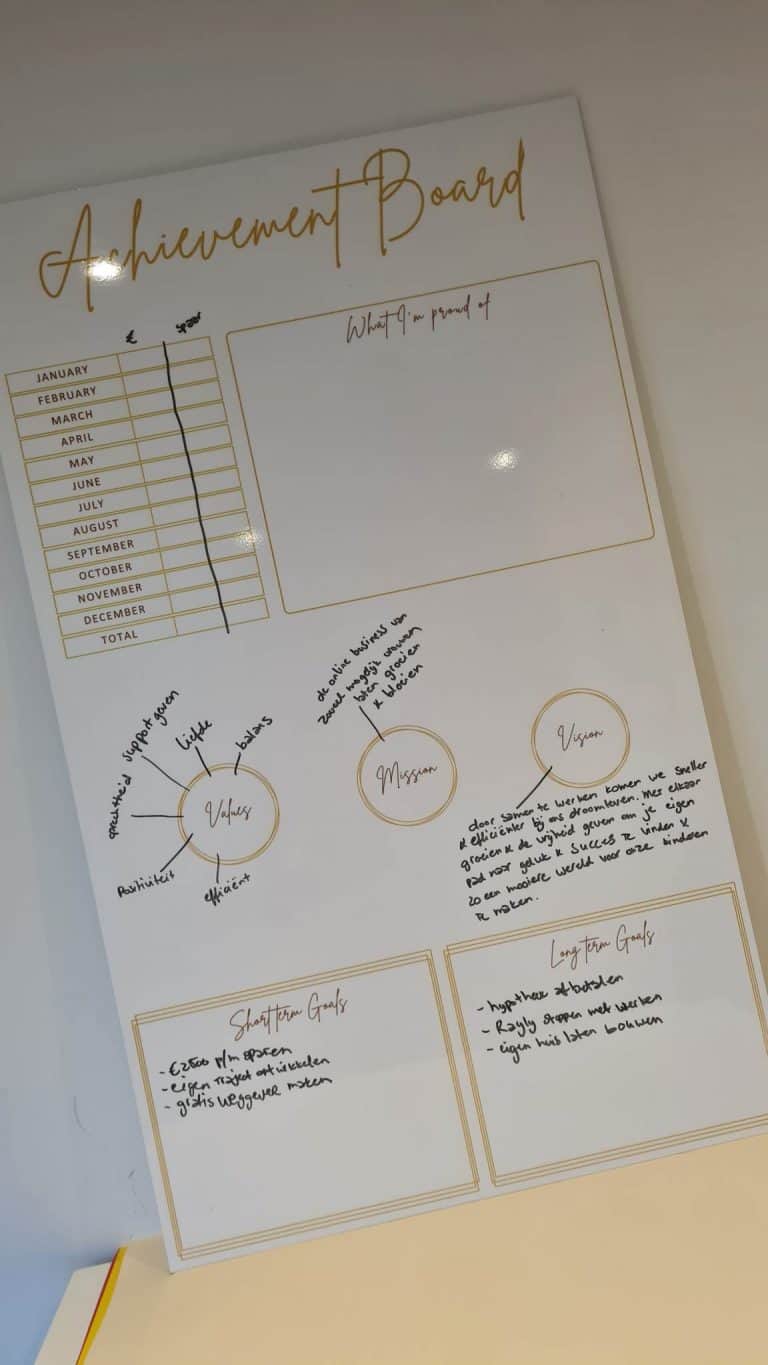 Achievement Board
€ spaar
JANUARY
FEBRUARY
MARCH
APRIL
MAY
JUNE
JULY
AUGUST
SEPTEMBER
OCTOBER
NOVEMBER
DECEMBER
TOTAL
What I'm proud of
Values
support geven
liefde
balans
oprechtheid
Positiviteit
efficiënt
de online business van
zoveel mogelijk vrouwen
laten groeien
& bloeien
Mission
Vision
door samen te werken komen we sneller
& efficiënter bij ons droomleven. Met elkaar
groeien & de vrijheid geven om je eigen
pad naar geluk & succes te vinden &
zo een mooiere wereld voor onze kinderen
te maken.
Short term Goals
- €2500 p/m sparen
- eigen traject ontwikkelen
- gratis weggever maken
Long term Goals
- hypotheek afbetalen
- Rayly stoppen met werken
- eigen huis laten bouwen